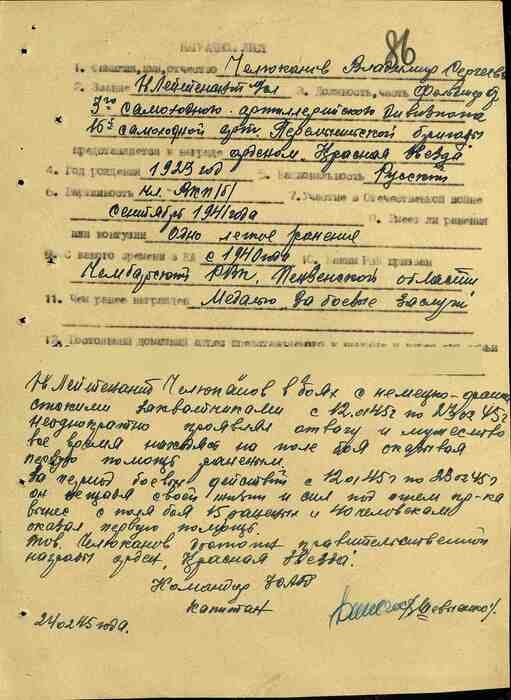 86
НАГРАДНОЙ ЛИСТ
1. Фамилия, имя, отчество Челюканов Владимир Сергеевич
2. Звание Мл Лейтенант м/с 3. Должность, часть Фельдшер
3го самоходного артиллерийского дивизиона
16й самоходной арт. Перемышльской бригады
представляется к награде орденом "Красная Звезда"
4. Год рождения 1923 год 5. Национальность Русский
6. Партийность чл. ВКП/б/ 7. Участие в Отечественной войне
сентябрь 1941 года 8. Имеет ли ранения
или контузии Одно легкое ранение
9. С какого времени в КА с 1940 года 10. Каким РВК призван
Чембарским РВК, Пензенской области
11. Чем ранее награжден Медалью "За боевые заслуги"
12. Постоянный домашний адрес представляемого к награде и адрес его семьи
Мл. Лейтенант Челюканов в боях с немецко-фашис
стскими захватчиками с 12.01.45г по 23.02.45г
неоднократно проявлял отвагу и мужество
все время находясь на поле боя оказывая
первую помощь раненым
За период боевых действий с 12.01.45г по 23.02.45г
он нещадя своей жизни и сил под огнем пр-ка
вынес с поля боя 15 раненых и 40 человекам
оказал первую помощь
Тов. Челюканов достоин правительственной
награды орден "Красная Звезда".
Командир
капитан /Шевченко/
24.02.45 года.